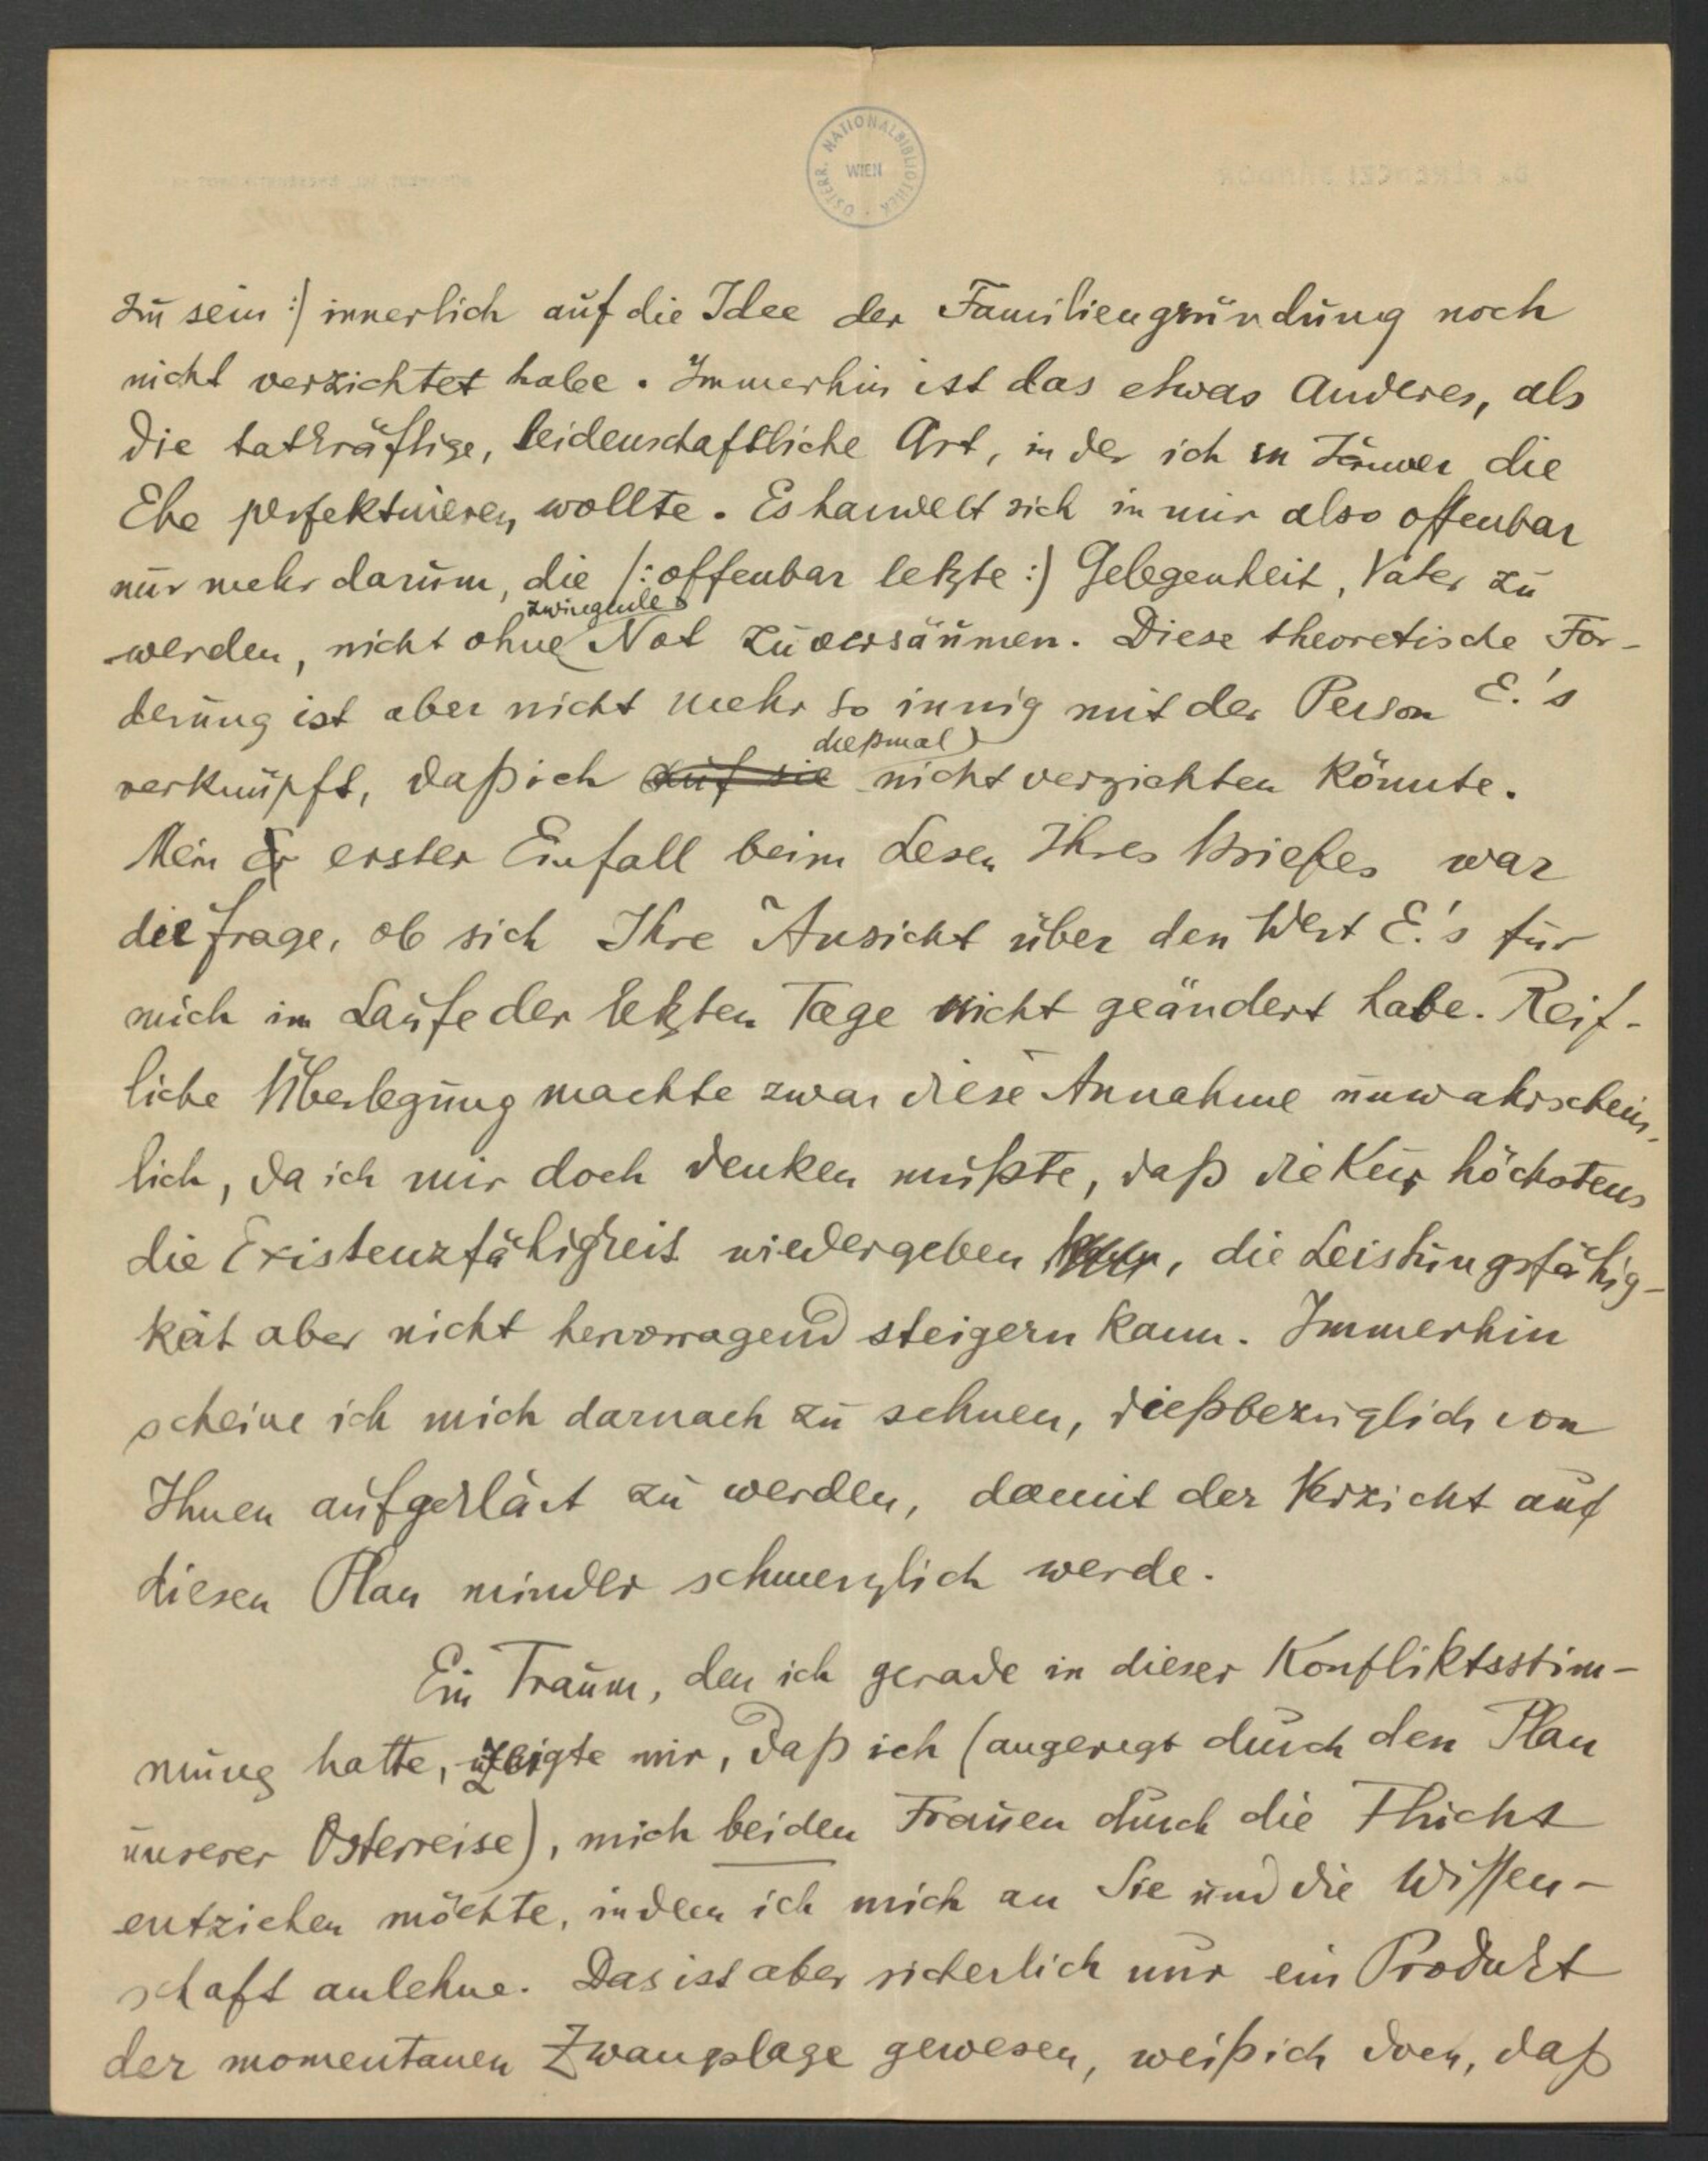 ÖSTERR. NATIONALBIBLIOTHEK WIEN
zu sein :) innerlich auf die Idee der Familiengründung noch
nicht verzichtet habe. Immerhin ist das etwas Anderes, als
die tatkräftige, leidenschaftliche Art, in der ich im Jänner die
Ehe perfektuieren wollte. Es handelt sich in mir also offenbar
nur mehr darum, die (: offenbar letzte :) Gelegenheit, Vater zu
zwingende
werden, nicht ohne Not zu versäumen. Diese theoretische For-
derung ist aber nicht mehr so innig mit der Person E.'s
dießmal
verknüpft, daß ich auf sie nicht verzichten könnte.
Mein Er erster Einfall beim Lesen Ihres Briefes war
die Frage, ob sich Ihre Ansicht über den Wert E.'s für
mich im Laufe der letzten Tage nicht geändert habe. Reif-
liche Überlegung machte zwar diese Annahme unwahrschein-
lich, da ich mir doch denken mußte, daß die Kur höchstens
die Existenzfähigkeit wiedergeben, die Leistungsfähig-
keit aber nicht hervorragend steigern kann. Immerhin
scheine ich mich darnach zu sehnen, dießbezüglich von
Ihnen aufgeklärt zu werden, damit der Verzicht auf
diesen Plan minder schmerzlich werde.
Ein Traum, den ich gerade in dieser Konfliktsstim-
mung hatte, zeigte mir, daß ich (angeregt durch den Plan
unserer Osterreise), mich beiden Frauen durch die Flucht
entziehen möchte, indem ich mich an Sie und die Wissen-
schaft anlehne. Das ist aber sicherlich nur ein Produkt
der momentanen Zwangslage gewesen, weiß ich doch, daß